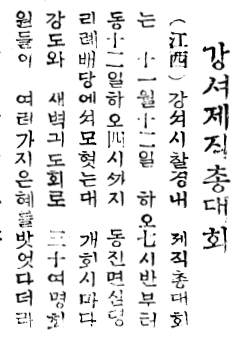 강셔제직총대회
(江西) 강서시찰경내 제직총대회
는 十一월十二일 하오七시반부터
동十二일하오四시ᄭᅡ지 동진면실덩
리례배당에서모혓는대 개회시마다
강도와 새벽긔도회로 三十여명회
원들이 여러가지은혜를밧엇다더라